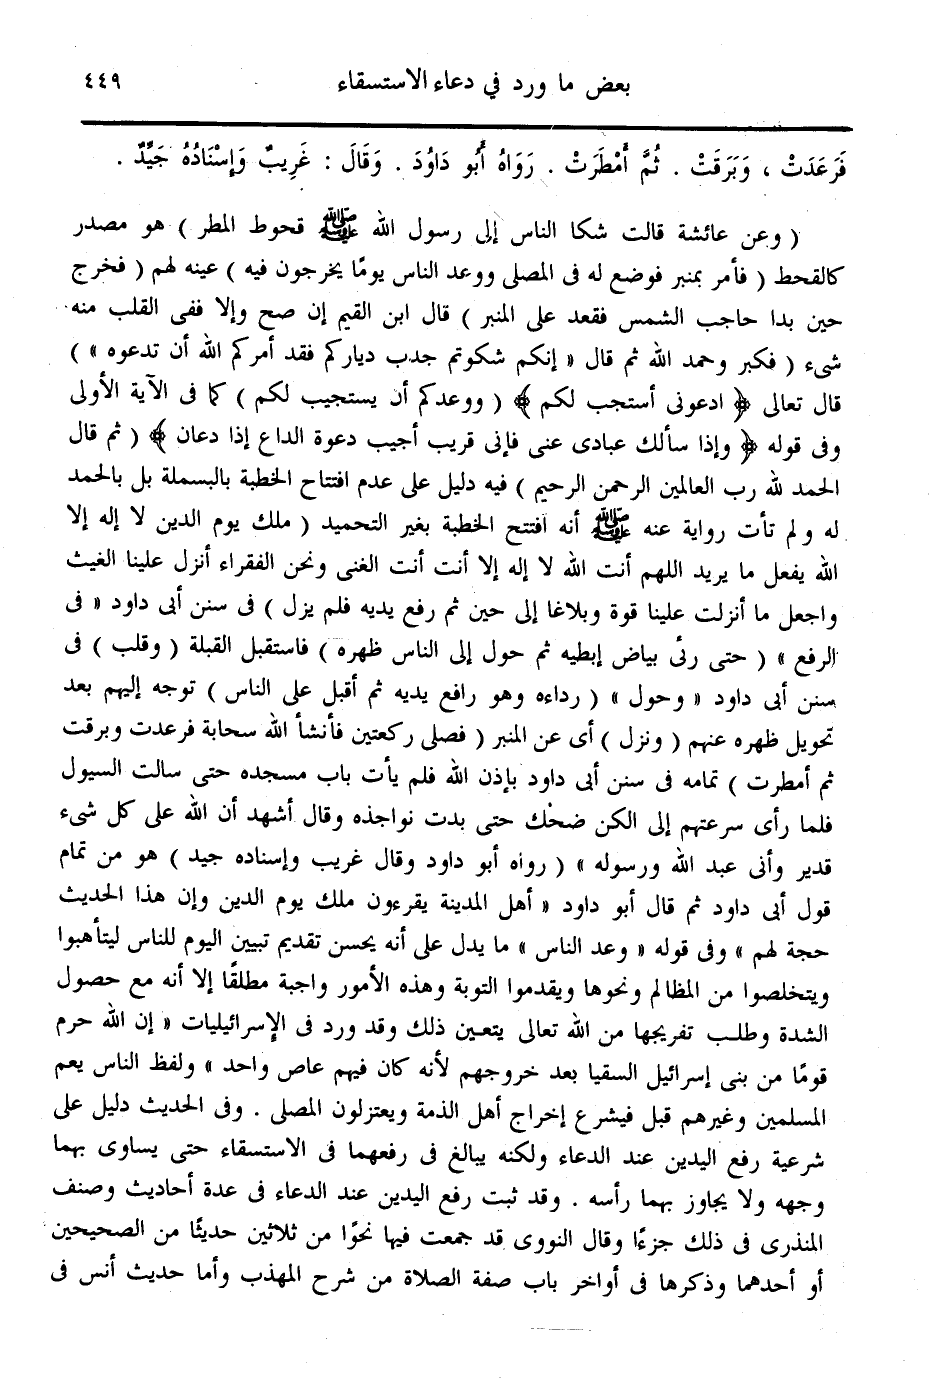 بعض ما ورد في دعاء الاستسقاء ٤٤٩
فَرَعَدَتْ ، وَبَرَقَتْ . ثُمَّ أَمْطَرَتْ . رَوَاهُ أَبُو دَاوُدَ . وَقَالَ : غَرِيبٌ وَإِسْنَادُهُ جَيِّدٌ .
( وعن عائشة قالت شكا الناس إلى رسول الله ﷺ قحوط المطر ) هو مصدر
كالقحط ( فأمر بمنبر فوضع له فى المصلى ووعد الناس يومًا يخرجون فيه ) عينه لهم ( فخرج
حين بدا حاجب الشمس فقعد على المنبر ) قال ابن القيم إن صح وإلا ففى القلب منه
شىء ( فكبر وحمد الله ثم قال « إنكم شكوتم جدب دياركم فقد أمركم الله أن تدعوه » )
قال تعالى ﴿ ادعونى أستجب لكم ﴾ ( ووعدكم أن يستجيب لكم ) كما فى الآية الأولى
وفى قوله ﴿ وإذا سألك عبادى عنى فإنى قريب أجيب دعوة الداع إذا دعان ﴾ ( ثم قال
الحمد لله رب العالمين الرحمن الرحيم ) فيه دليل على عدم افتتاح الخطبة بالبسملة بل بالحمد
له ولم تأت رواية عنه ﷺ أنه افتتح الخطبة بغير التحميد ( ملك يوم الدين لا إله إلا
الله يفعل ما يريد اللهم أنت الله لا إله إلا أنت أنت الغنى ونحن الفقراء أنزل علينا الغيث
واجعل ما أنزلت علينا قوة وبلاغا إلى حين ثم رفع يديه فلم يزل ) فى سنن أبى داود « فى
الرفع » ( حتى رئى بياض إبطيه ثم حول إلى الناس ظهره ) فاستقبل القبلة ( وقلب ) فى
سنن أبى داود « وحول » ( رداءه وهو رافع يديه ثم أقبل على الناس ) توجه إليهم بعد
تحويل ظهره عنهم ( ونزل ) أى عن المنبر ( فصلى ركعتين فأنشأ الله سحابة فرعدت وبرقت
ثم أمطرت ) تمامه فى سنن أبى داود بإذن الله فلم يأت باب مسجده حتى سالت السيول
فلما رأى سرعتهم إلى الكن ضحك حتى بدت نواجذه وقال أشهد أن الله على كل شىء
قدير وأنى عبد الله ورسوله » ( رواه أبو داود وقال غريب وإسناده جيد ) هو من تمام
قول أبى داود ثم قال أبو داود « أهل المدينة يقرءون ملك يوم الدين وإن هذا الحديث
حجة لهم » وفى قوله « وعد الناس » ما يدل على أنه يحسن تقديم تبيين اليوم للناس ليتأهبوا
ويتخلصوا من المظالم ونحوها ويقدموا التوبة وهذه الأمور واجبة مطلقًا إلا أنه مع حصول
الشدة وطلب تفريجها من الله تعالى يتعين ذلك وقد ورد فى الإسرائيليات « إن الله حرم
قومًا من بنى إسرائيل السقيا بعد خروجهم لأنه كان فيهم عاص واحد » ولفظ الناس يعم
المسلمين وغيرهم قبل فيشرع إخراج أهل الذمة ويعتزلون المصلى . وفى الحديث دليل على
شرعية رفع اليدين عند الدعاء ولكنه يبالغ فى رفعهما فى الاستسقاء حتى يساوى بهما
وجهه ولا يجاوز بهما رأسه . وقد ثبت رفع اليدين عند الدعاء فى عدة أحاديث وصنف
المنذرى فى ذلك جزءًا وقال النووى قد جمعت فيها نحوًا من ثلاثين حديثًا من الصحيحين
أو أحدهما وذكرها فى أواخر باب صفة الصلاة من شرح المهذب وأما حديث أنس فى